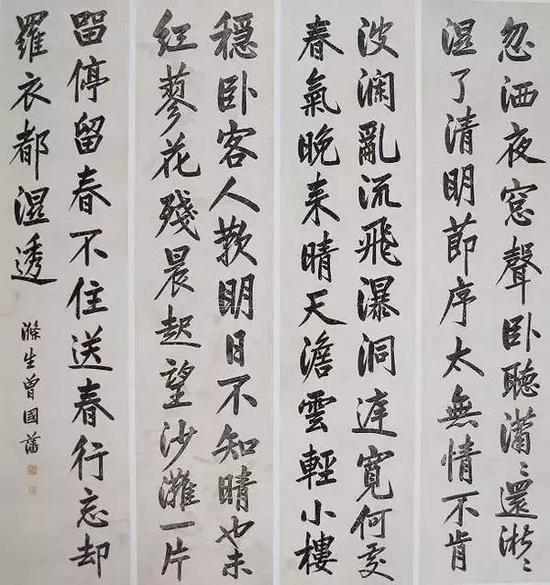 忽洒夜窓聲卧聽瀟〻還淅〻
湿了清明節序太無情不肯
波瀾亂流飛瀑洞庭寬何處
春氣晚来晴天澹雲輕小樓
穩卧客人歎明日不知晴也未
紅蓼花殘晨起望沙灘一片
留停留春不住送春行忘却
羅衣都湿透
滌生曾國藩